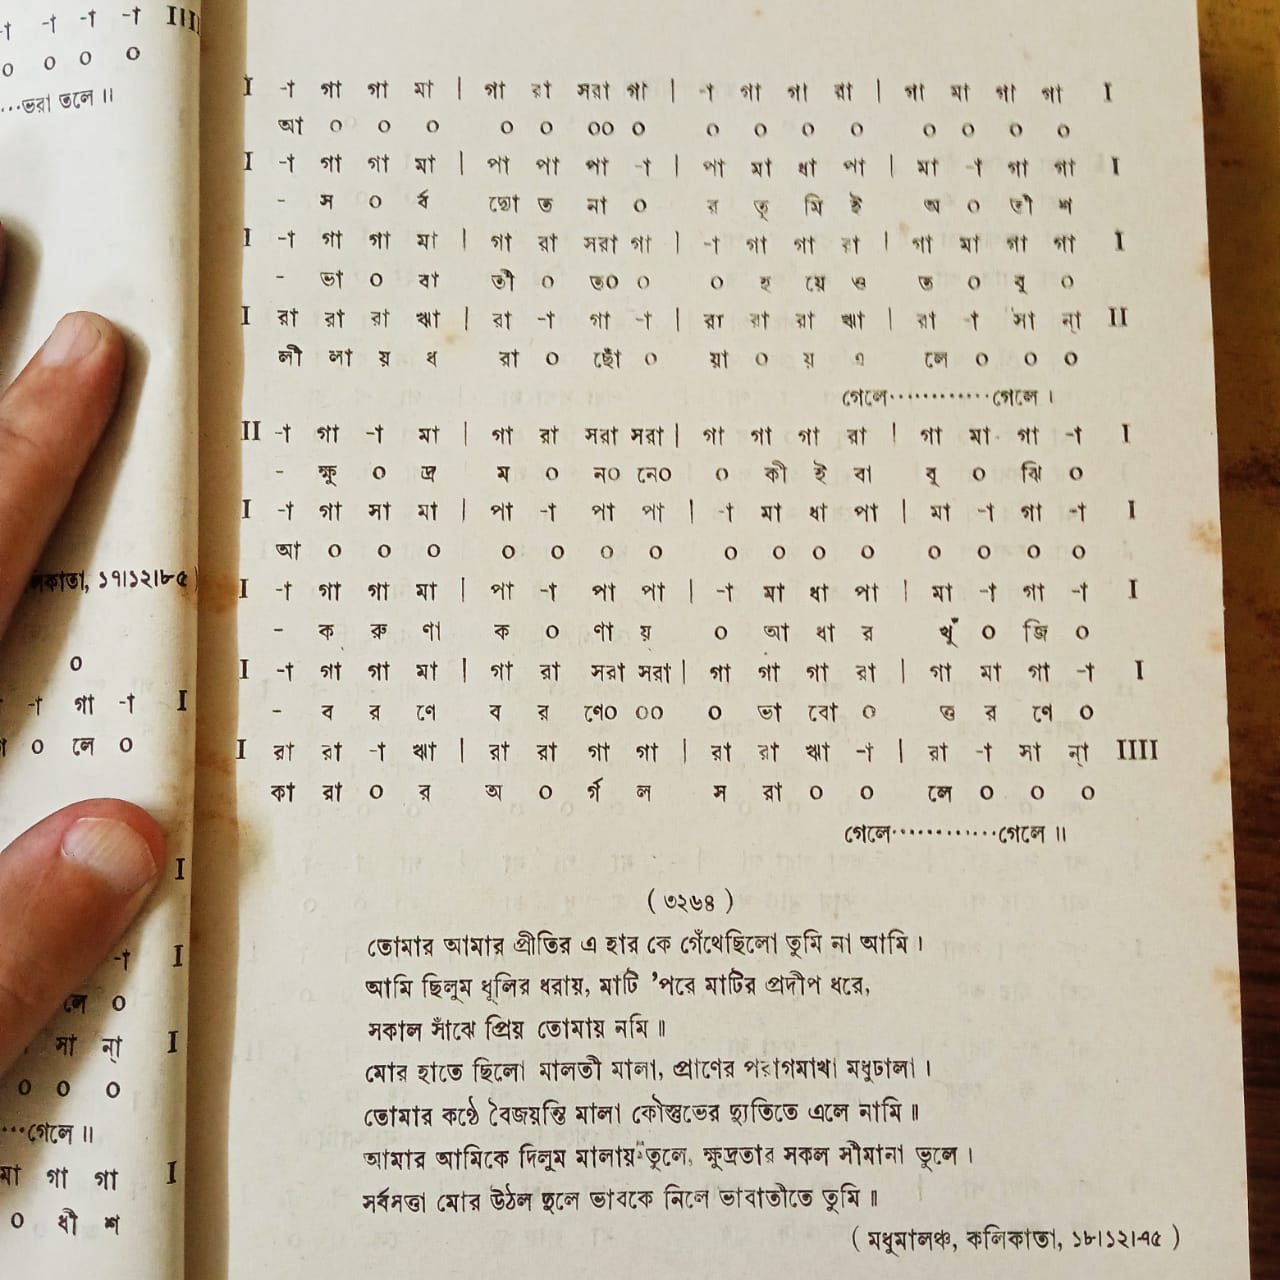 -া -া -া -া IIII
০ ০ ০ ০
...ভরা তলে ॥
১৭।১২।৮৫ )
০
-া গা -া I
০ লে ০
I
-া I
লে ০
সা ন্া I
০ ০ ০
...গেলে ॥
মা গা গা I
০ ধী শ
I -া গা গা মা | গা রা সরা গা | -া গা গা রা | গা মা গা গা I
আ ০ ০ ০ ০ ০ ০০ ০ ০ ০ ০ ০ ০ ০ ০ ০
I -া গা গা মা | পা পা পা -া | পা মা ধা পা | মা -া গা গা I
- স ০ র্ব দ্যো ত না ০ র তু মি ই অ ০ তী শ
I -া গা গা মা | গা রা সরা গা | -া গা গা রা | গা মা গা গা I
- ভা ০ বা তী ০ ত০ ০ ০ হ য়ে ও ত ০ বু ০
I রা রা রা ঋা | রা -া গা -া | রা রা রা ঋা | রা -া সা ন্া II
লী লা য় ধ রা ০ ছোঁ ০ য়া ০ য় এ লে ০ ০ ০
গেলে............গেলে ।
II -া গা -া মা | গা রা সরা সরা | গা গা গা রা | গা মা গা -া I
- ক্ষু ০ দ্র ম ০ ন০ নে০ ০ কী ই বা বু ০ ঝি ০
I -া গা মা মা | পা -া পা পা | -া মা ধা পা | মা -া গা -া I
আ ০ ০ ০ ০ ০ ০ ০ ০ ০ ০ ০ ০ ০ ০ ০
I -া গা গা মা | পা -া পা পা | -া মা ধা পা | মা -া গা -া I
- ক রু ণা ক ০ ণা য় ০ আ ধা র খুঁ ০ জি ০
I -া গা গা মা | গা রা সরা সরা | গা গা গা রা | গা মা গা -া I
- ব র ণে ব র ণে০ ০০ ০ ভা বো ০ ত্ত র ণে ০
I রা রা -া ঋা | রা রা গা গা | রা রা ঋা -া | রা -া সা ন্া IIII
কা রা ০ র অ ০ র্গ ল স রা ০ ০ লে ০ ০ ০
গেলে............গেলে ॥
( ৩২৬৪ )
তোমার আমার প্রীতির এ হার কে গেঁথেছিলো তুমি না আমি ।
আমি ছিলুম ধূলির ধরায়, মাটি 'পরে মাটির প্রদীপ ধরে,
সকাল সাঁঝে প্রিয় তোমায় নমি ॥
মোর হাতে ছিলো মালতী মালা, প্রাণের পরাগমাখা মধুঢালা ।
তোমার কণ্ঠে বৈজয়ন্তি মালা কৌস্তুভের দ্যুতিতে এলে নামি ॥
আমার আমিকে দিলুম মালায় তুলে, ক্ষুদ্রতার সকল সীমানা ভুলে ।
সর্বসত্তা মোর উঠল দুলে ভাবকে নিলে ভাবাতীতে তুমি ॥
( মধুমালঞ্চ, কলিকাতা, ১৮।১২।৭৫ )